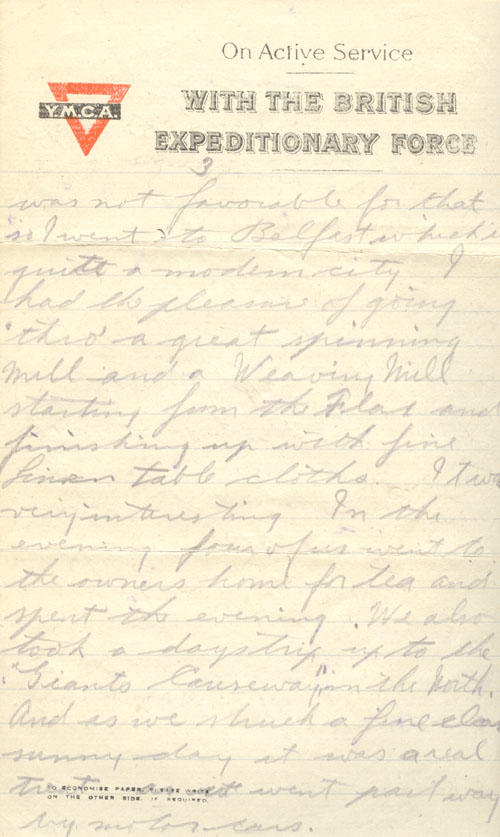 On Active Service
Y.M.C.A.
WITH THE BRITISH
EXPEDITIONARY FORCE
3
was not favorable for that
so I went to Belfast which is
quite a modern city I
had the pleasure of going
'thro' a great spinning
Mill and a Weaving Mill
starting from the Flax and
finishing up with fine
Linen table cloths. It was
very interesting In the
evening four of us went to
the owners home for tea and
spent the evening. We also
took a days trip up to the
"Giants Causeway" in the North.
And as we struck a fine clear
sunny day it was a real
treat went part way
by motor cars.
TO ECONOMISE PAPER, PLEASE WRITE
ON THE OTHER SIDE, IF REQUIRED.